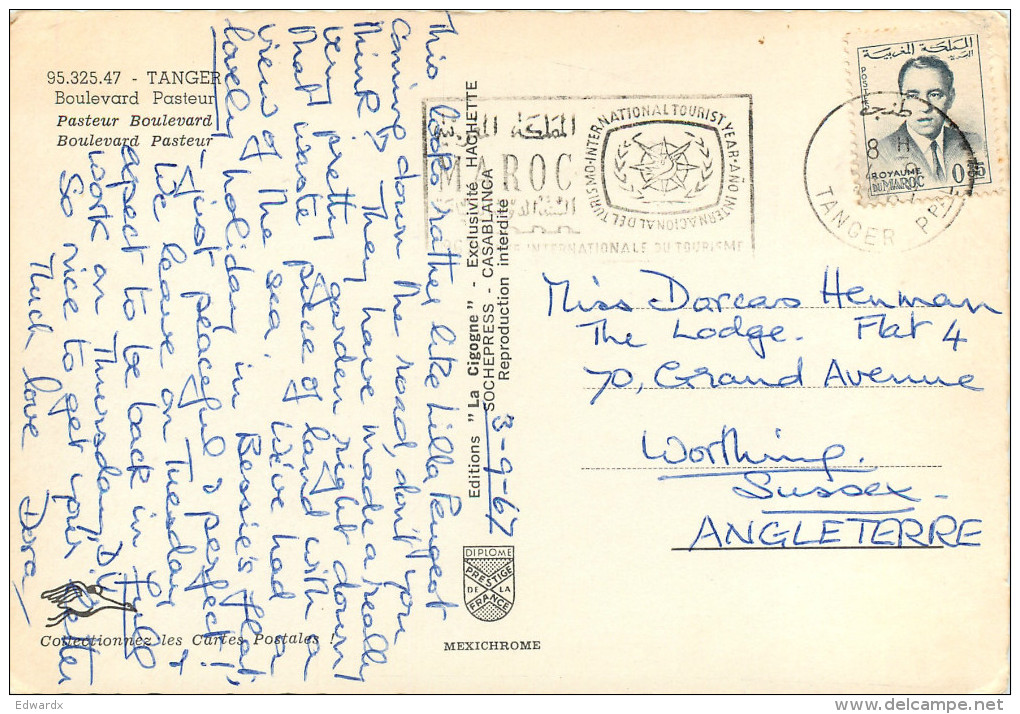 95.325.47 - TANGER
Boulevard Pasteur
Pasteur Boulevard
Boulevard Pasteur
This looks rather like Villa Peugeot
coming down the road, don't you
think? They have made a really
very pretty garden right down
that waste piece of land with a
view of the sea. We've had a
lovely holiday in Bessie's flat,
- just peaceful & perfect!
We leave on Tuesday &
expect to be back in full
work on Thursday D.V.
So nice to get your letter
Much love Dora
Collectionnez les Cartes Postales !
Editions "La Cigogne" - Exclusivité HACHETTE
SOCHEPRESS - CASABLANCA
Reproduction interdite
3-9-67
DIPLOME
PRESTIGE
DE LA
FRANCE
MEXICHROME
المملكة المغربية
MAROC
INTERNATIONAL TOURIST YEAR · AÑO INTERNACIONAL DEL TURISMO ·
INTERNATIONALE DU TOURISME
المملكة المغربية
POSTES
ROYAUME
DU MAROC
0,35
طنجة
8 H
TANGER PPAL
Miss Dorcas Henman
The Lodge. Flat 4
70, Grand Avenue
Worthing.
Sussex -
ANGLETERRE
Edwardx
www.delcampe.net